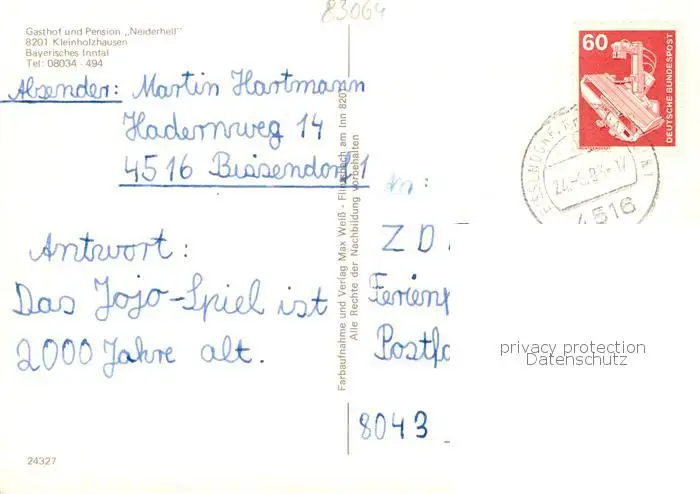 83064
Gasthof und Pension „Neiderhell"
8201 Kleinholzhausen
Bayerisches Inntal
Tel: 08034 - 494
Absender: Martin Hartmann
Hadernweg 14
4516 Bissendorf 1
Antwort:
Das Jojo-Spiel ist
2000 Jahre alt.
24327
Farbaufnahme und Verlag Max Weiß - Flintsbach am Inn 8201
Alle Rechte der Nachbildung vorbehalten
60
DEUTSCHE BUNDESPOST
4516
An:
Z D
Ferien
Postf
8043
privacy protection
Datenschutz